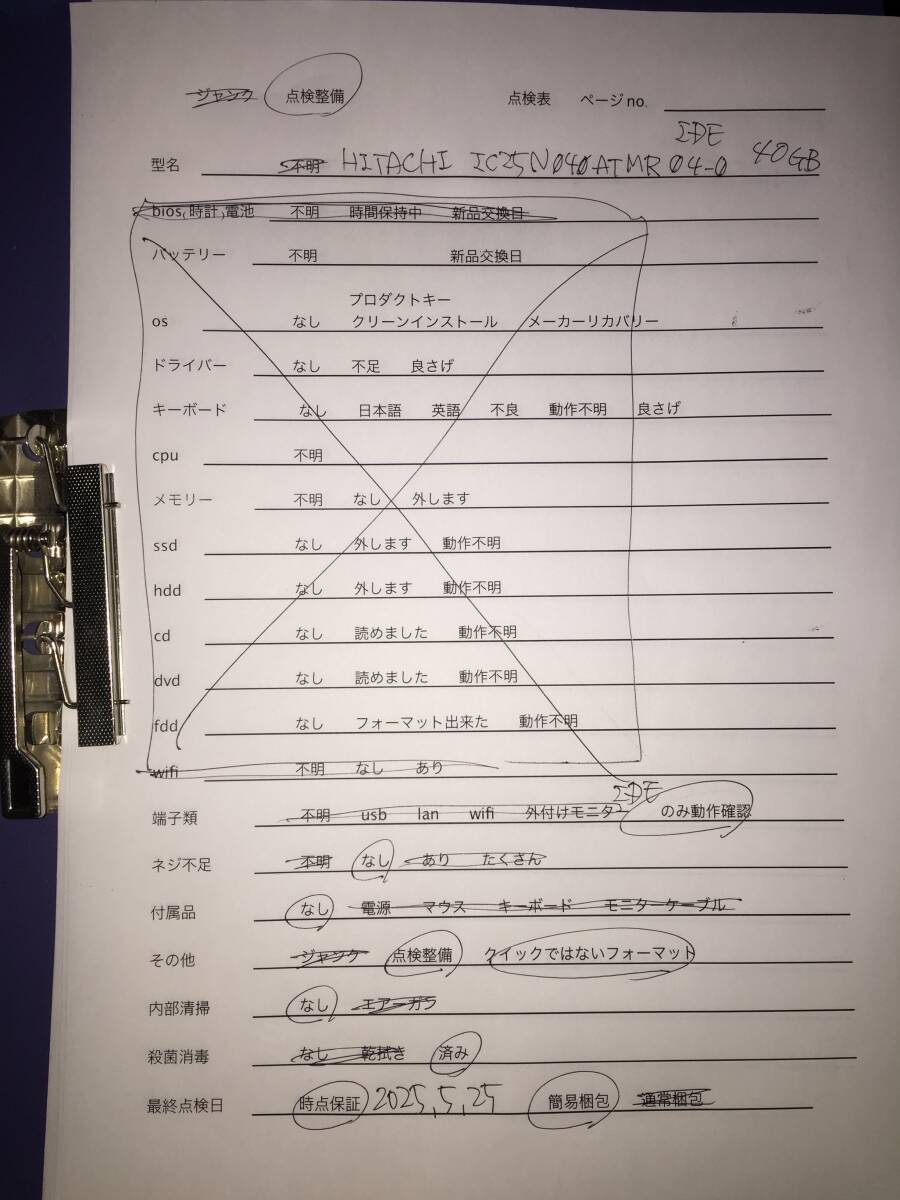 ジャンク 点検整備 点検表 ページno.
IDE
型名 不明 HITACHI IC25N040ATMR04-0 40GB
bios,時計,電池 不明 時間保持中 新品交換日
バッテリー 不明 新品交換日
プロダクトキー
os なし クリーンインストール メーカーリカバリー
ドライバー なし 不足 良さげ
キーボード なし 日本語 英語 不良 動作不明 良さげ
cpu 不明
メモリー 不明 なし 外します
ssd なし 外します 動作不明
hdd なし 外します 動作不明
cd なし 読めました 動作不明
dvd なし 読めました 動作不明
fdd なし フォーマット出来た 動作不明
wifi 不明 なし あり
IDE
端子類 不明 usb lan wifi 外付けモニター のみ動作確認
ネジ不足 不明 なし あり たくさん
付属品 なし 電源 マウス キーボード モニターケーブル
その他 ジャンク 点検整備 クイックではないフォーマット
内部清掃 なし エアーガン
殺菌消毒 なし 乾拭き 済み
最終点検日 時点保証 2025,5,25 簡易梱包 通常梱包